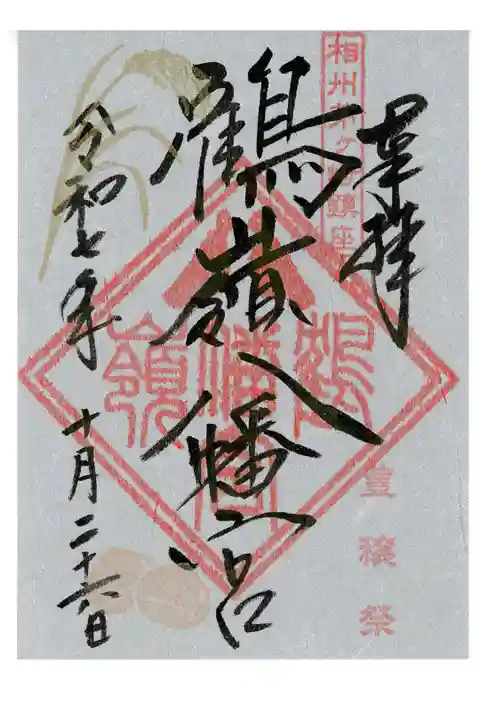 奉拝
相州茅ヶ崎鎮座
豊穣祭
鶴嶺八幡宮
鶴嶺八幡宮
令和七年
十月二十六日